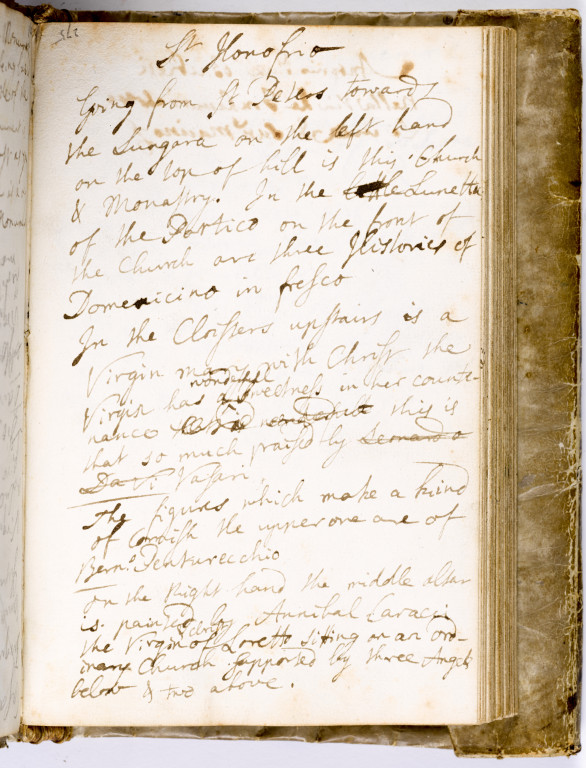 St. Honofrio
Going from St Peters towards
the Lungara on the left hand
on the top of hill is this Church
& Monastry. In the Lunetta
of the Portico on the front of
the Church are three Histories of
Domenicino in fresco
In the Cloisters upstairs is a
Virgin mary with Christ the
wonderful
Virgin has a sweetness in her count-
nance this is
that so much praised by Leonardo
Da Vi: Vasari
The figures which make a kind
of Cornish the upper one are of
Bern: Penturecchio
On the Right hand the middle altar
is painted by Annibal Caracci
the Virgin of Loretto sitting on an ord-
inary Church supported by three Angels
below & two above.